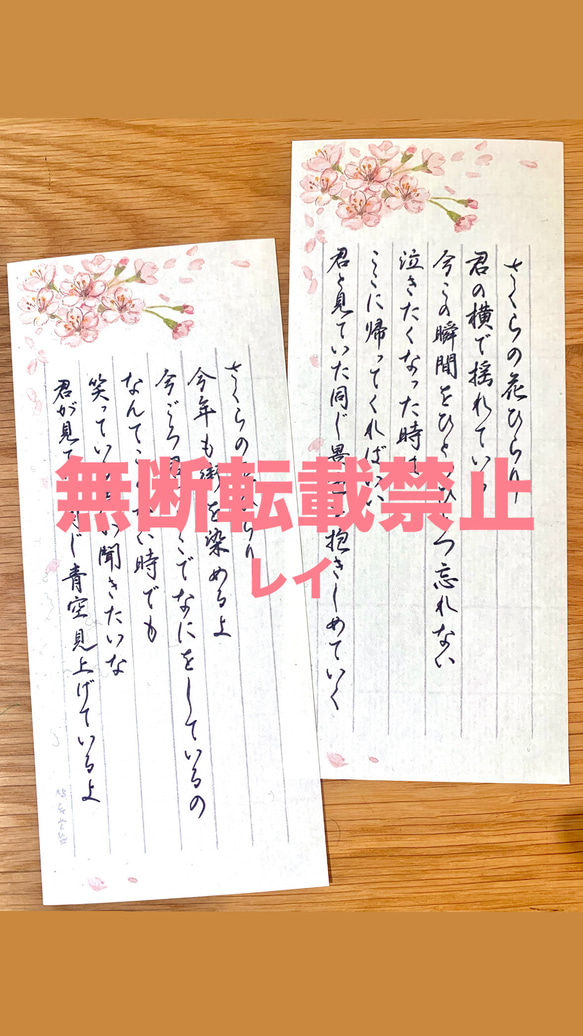 さくらの花ひらり
君の横で揺れている
今この瞬間をひとつひとつ忘れない
泣きたくなった時は
ここに帰ってくればいい
君と見ていた同じ景色 抱きしめていく
さくらの らり
今年も街を染めるよ
今ごろ こでなにをしているの
なんて い時でも
笑ってい 聞きたいな
君が見て じ青空見上げているよ
無断転載禁止
レイ